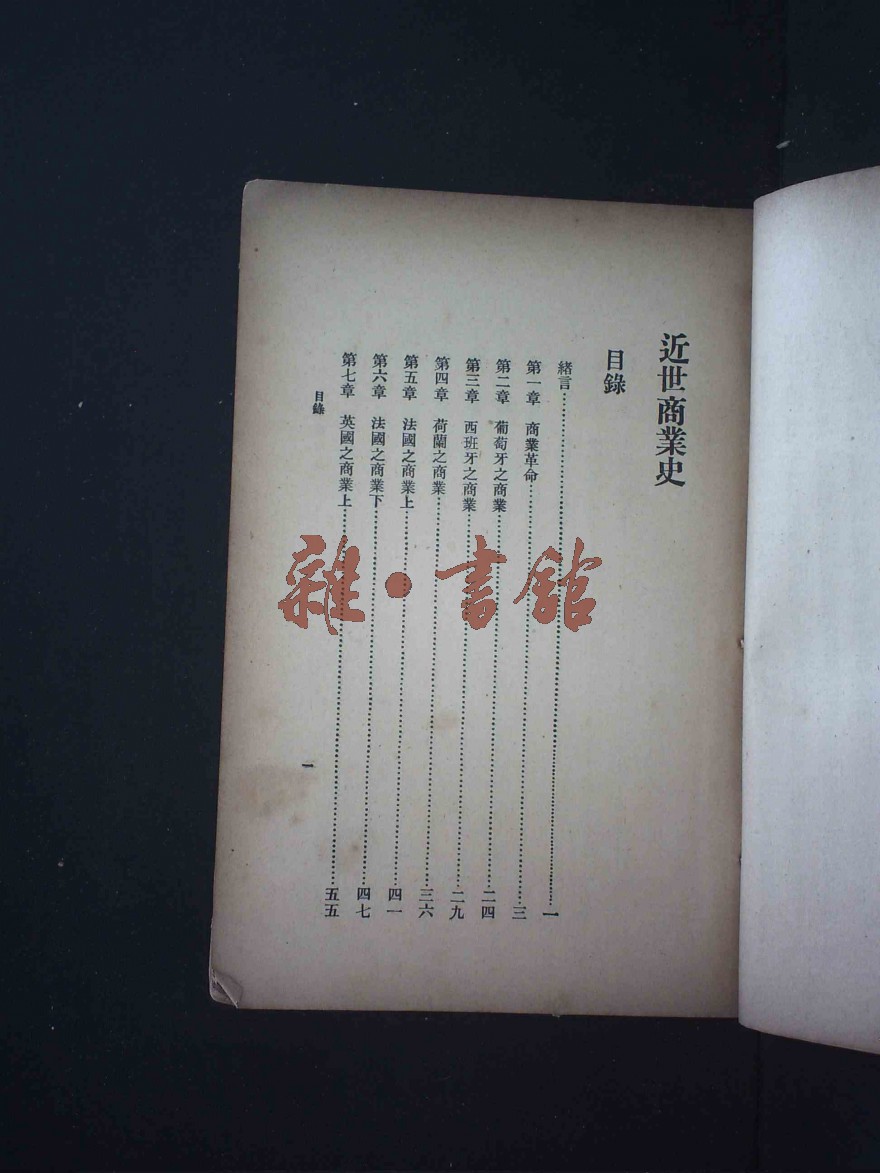 近世商業史
目錄
緒言……一
第一章 商業革命……三
第二章 葡萄牙之商業……二四
第三章 西班牙之商業……二九
第四章 荷蘭之商業……三六
第五章 法國之商業上……四一
第六章 法國之商業下……四七
第七章 英國之商業上……五五
目錄
一
雜·書館